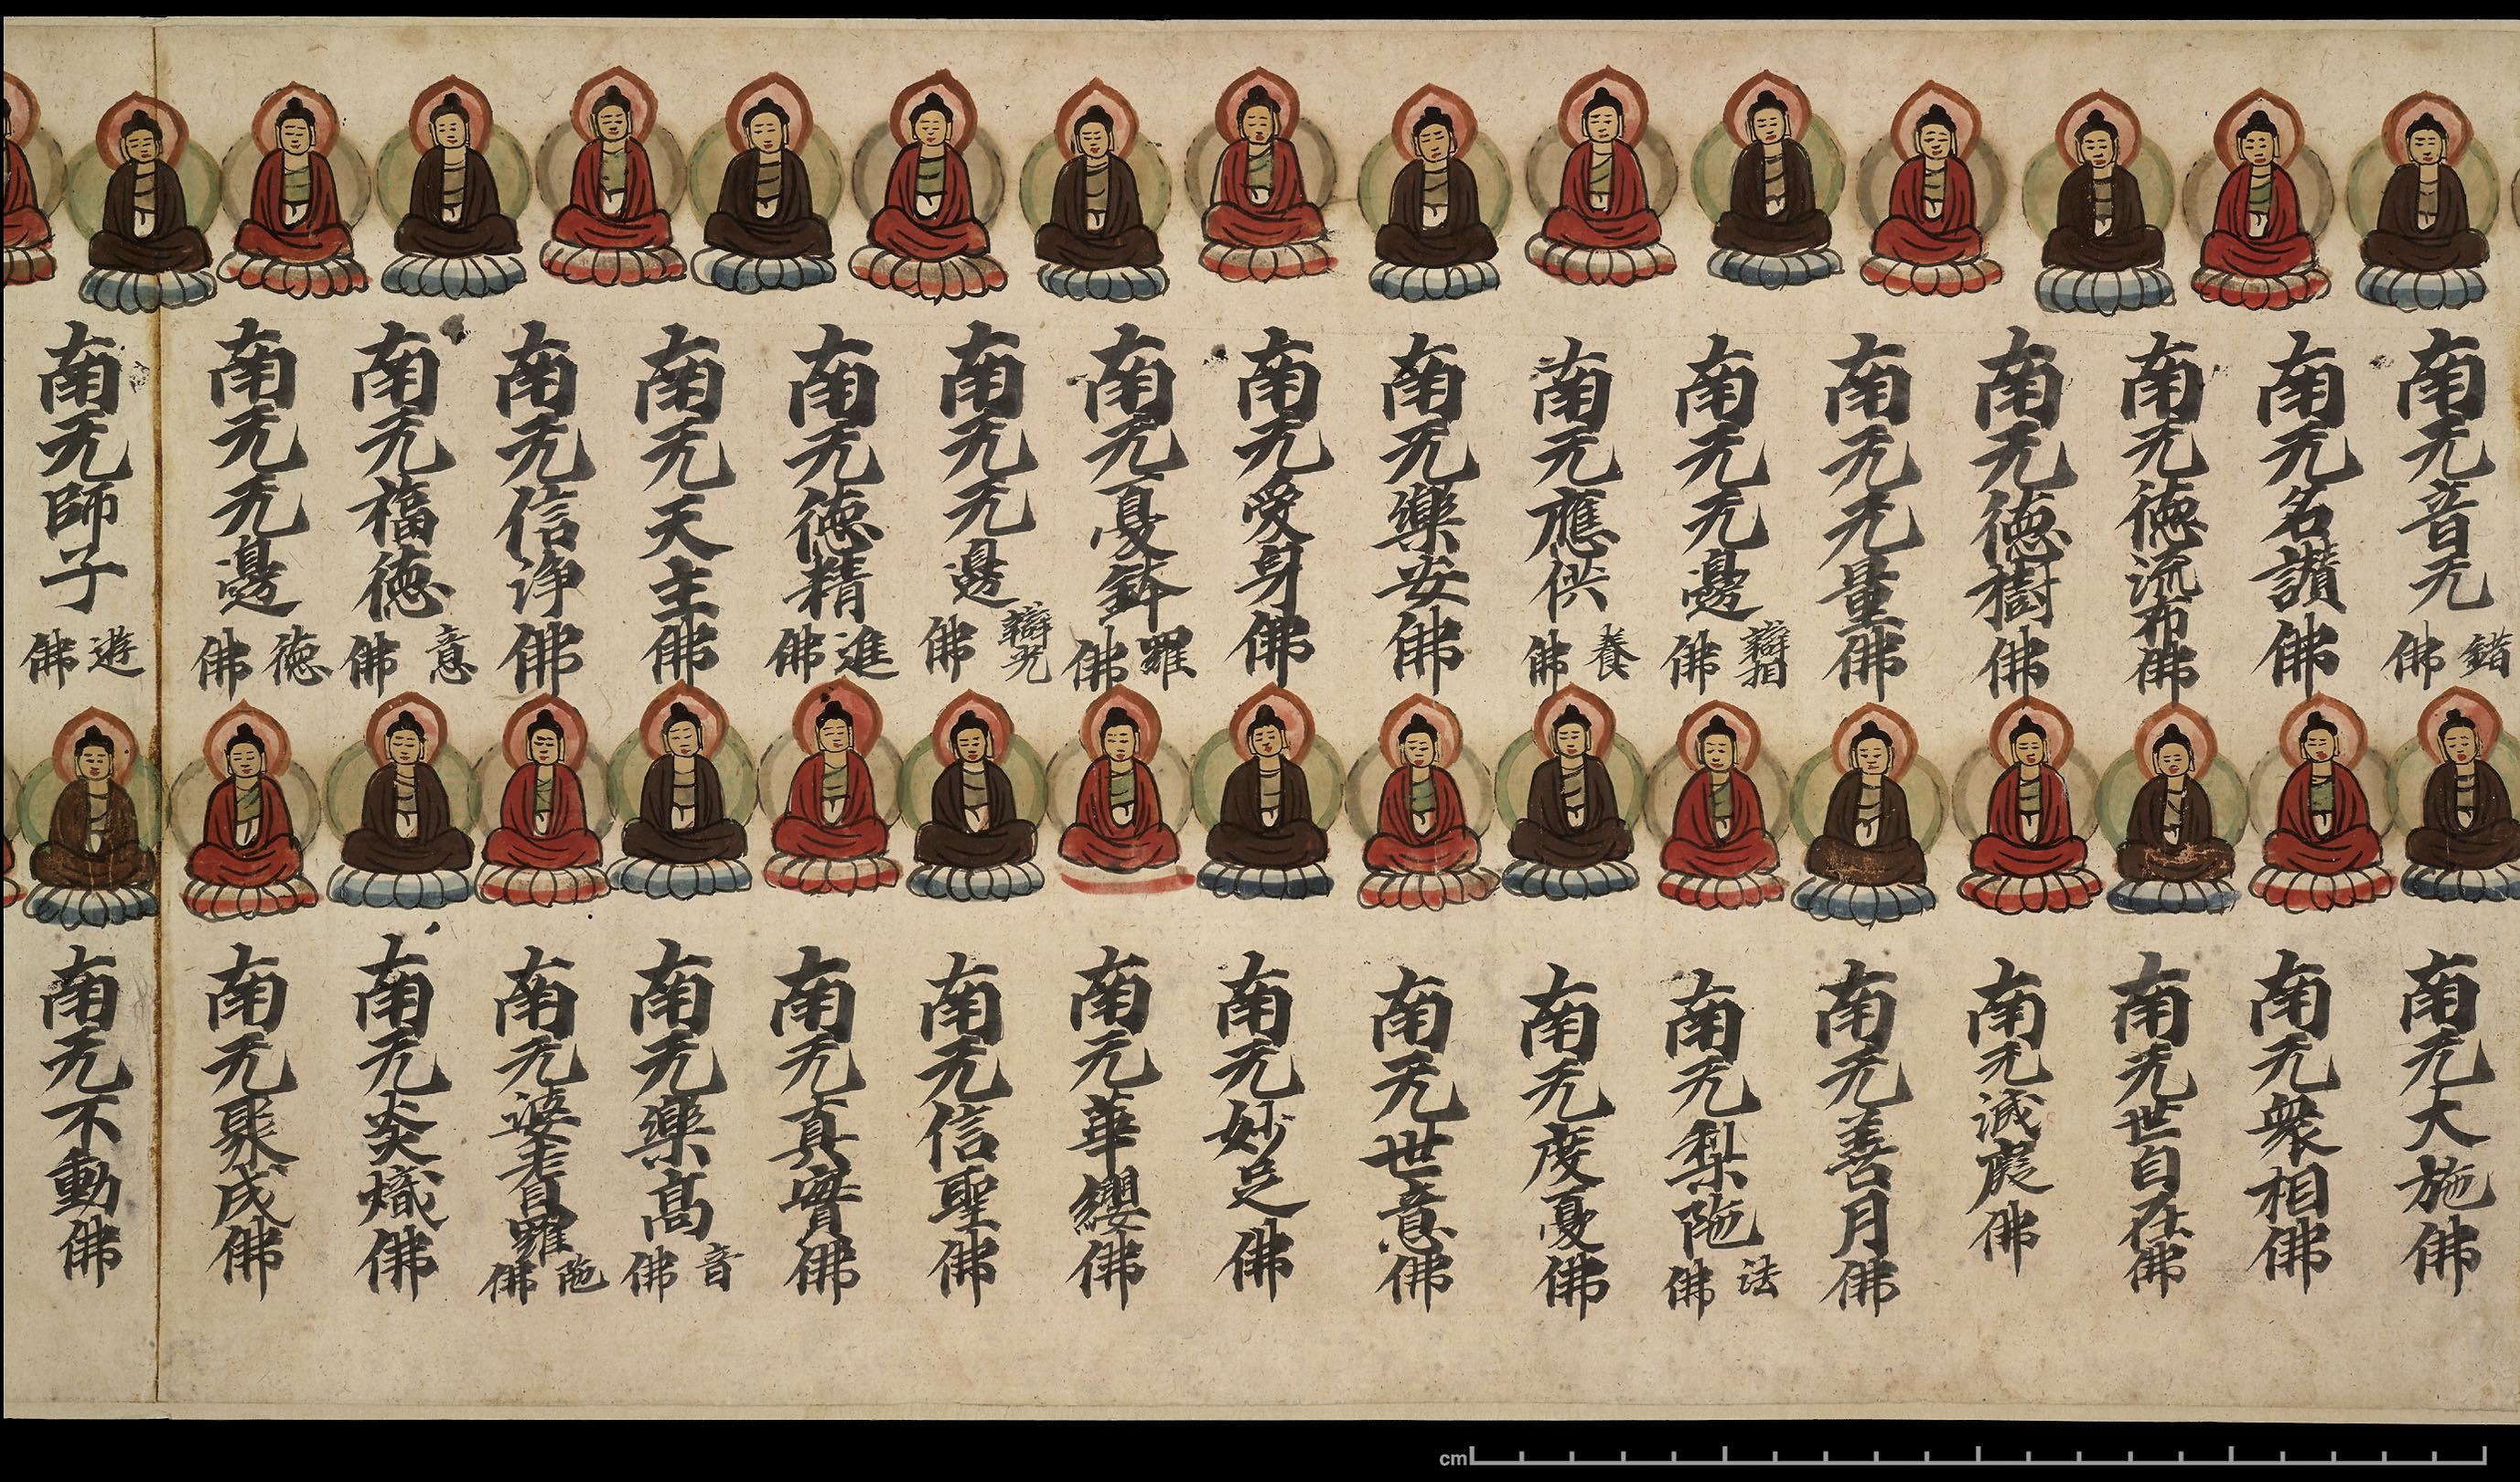 南无音无錯佛
南无名讚佛
南无德流布佛
南无德樹佛
南无无量佛
南无无邊辯相佛
南无應供養佛
南无樂安佛
南无受身佛
南无憂鉢羅佛
南无无邊辯光佛
南无德精進佛
南无天主佛
南无信淨佛
南无福德意佛
南无无邊德佛
南无師子遊佛
南无大施佛
南无衆相佛
南无世自在佛
南无滅佛
南无善月佛
南无梨陁法佛
南无度憂佛
南无世意佛
南无妙足佛
南无華纓佛
南无信聖佛
南无真實佛
南无樂高音佛
南无婆耆羅陁佛
南无炎熾佛
南无聚成佛
南无不動佛
cm